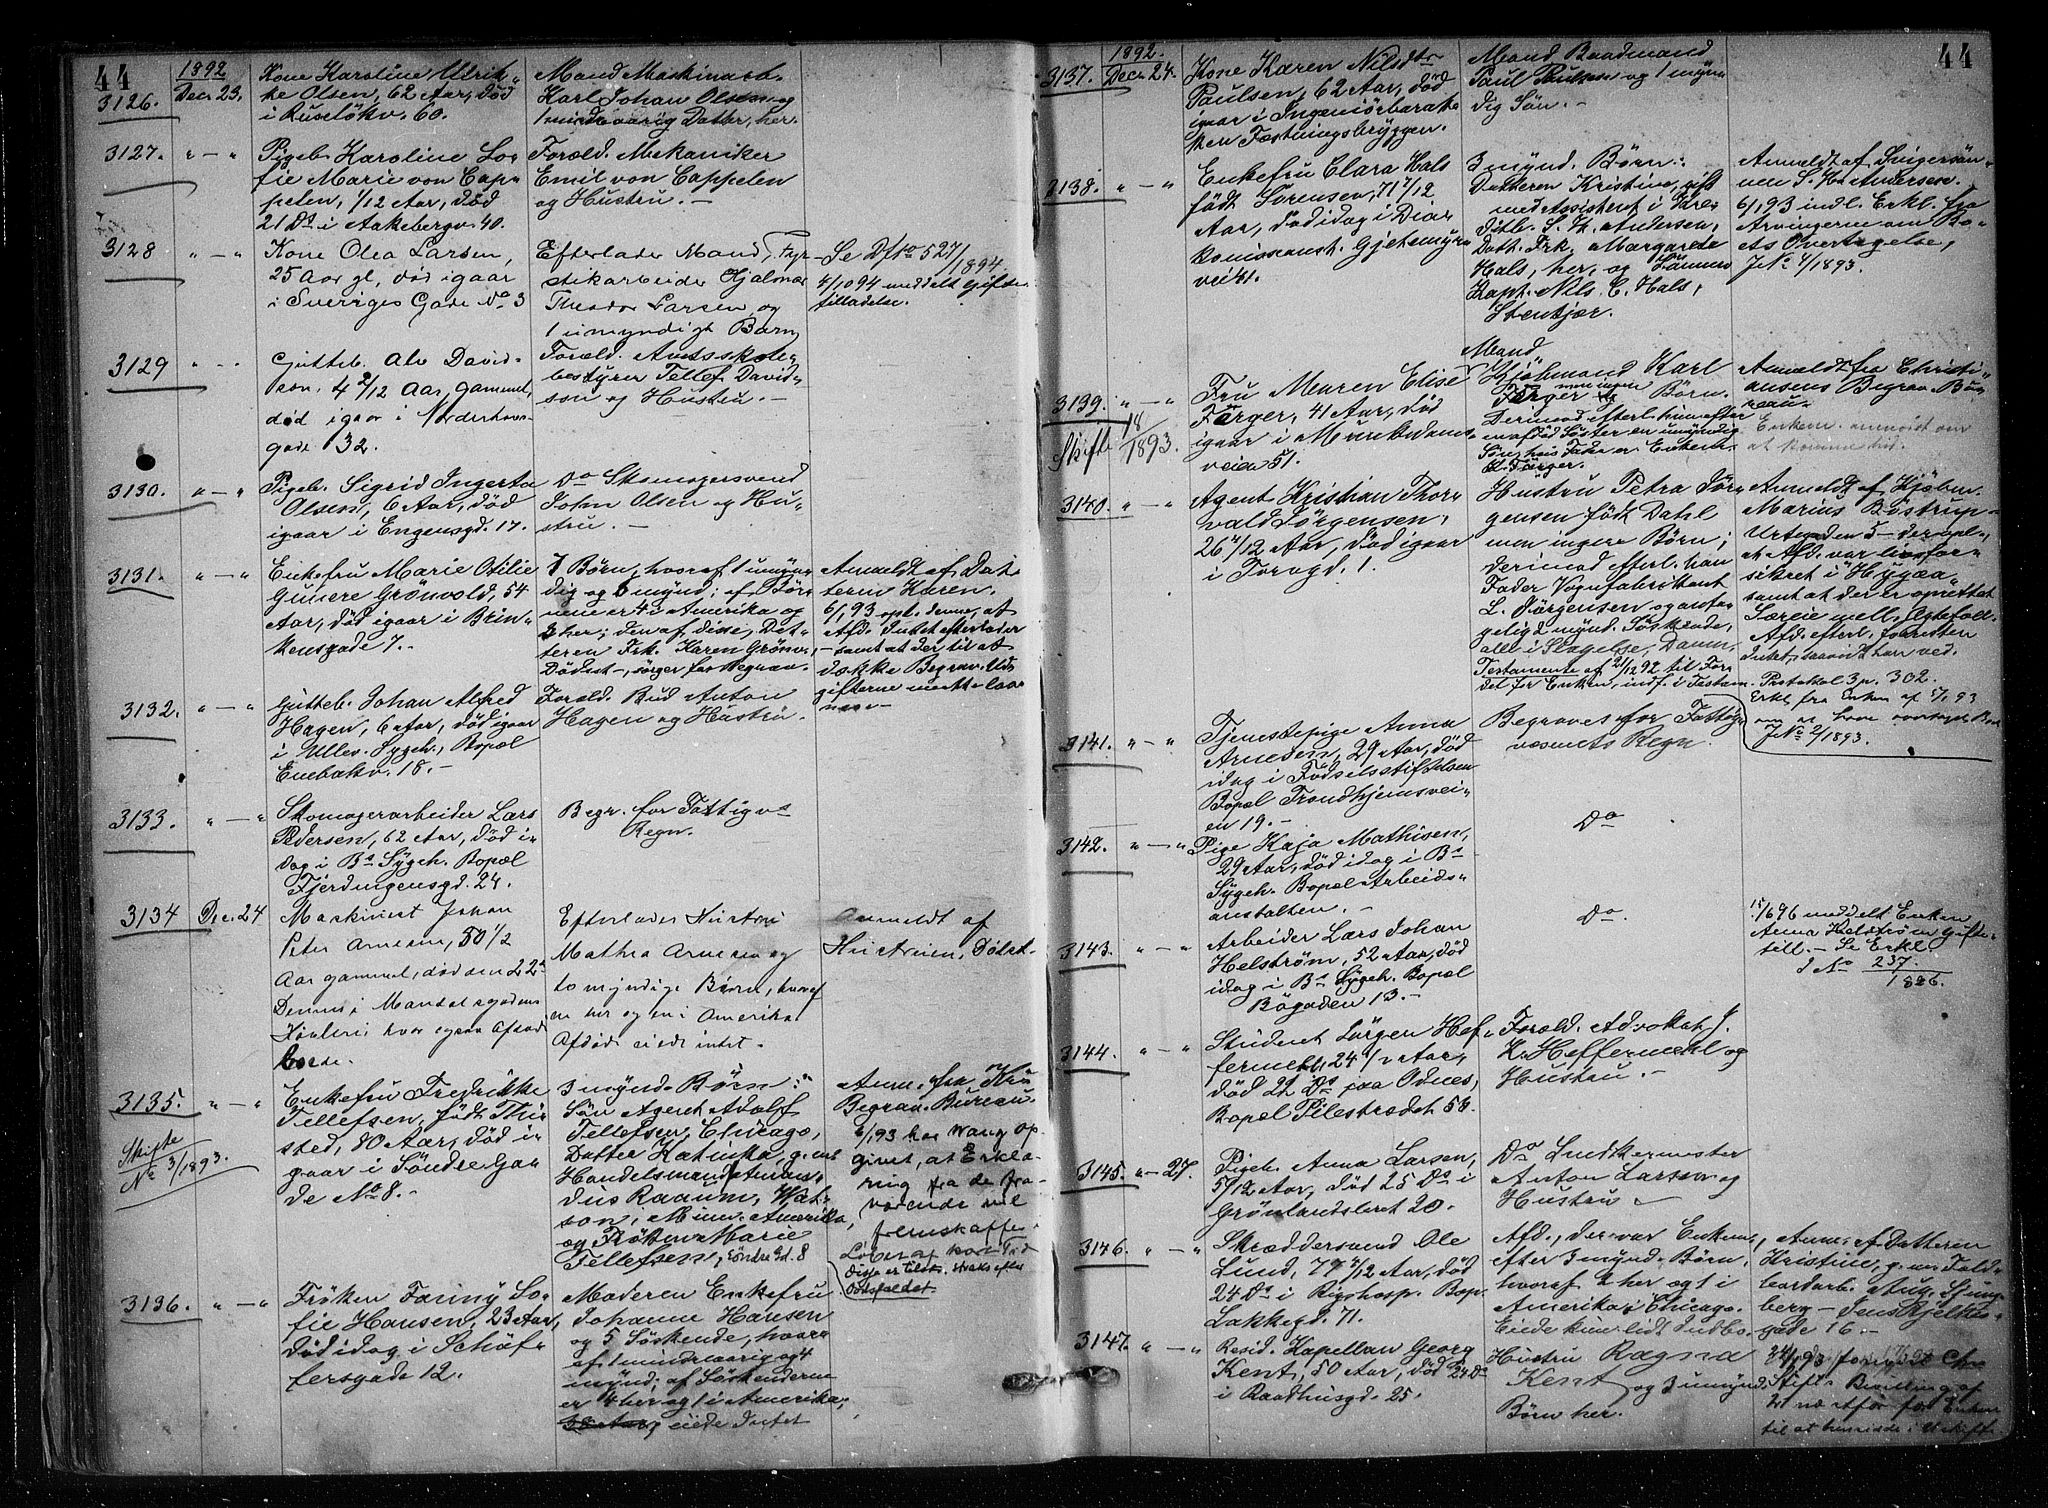 44
1892
3126. Decr 23.
Kone Karoline Ulrik-
ke Olsen, 62 Aar, död
i Ruselökv. 60.
Mand Maskinarb.
Karl Johan Olsen og
1 mindreaarig Datter, her.
3127. " — "
Pigeb. Karoline So-
fie Marie von Cap-
pelen, 1/12 Aar, död
21 Ds i Aakebergv. 40.
Foræld. Mekaniker
Emil von Cappelen
og Hustru. —
3128 " — "
Kone Olea Larsen,
25 Aar gl, död igaar
i Sveriges Gade No 3
Efterlader Mand, Fyr-
stikarbeider Hjalmar
Theodor Larsen og
1 umyndigt Barn
Se Df No 527/1894
4/1094 meddelt Gifte-
tilladelse.
3129 " — "
Gutteb. Alv David-
son, 4 2/12 Aar, gammel,
död igaar i Nordehovs-
gade 32.
Foræld. Amtsskole-
bestyrer Tellef David-
sson og Hustru. —
3130. " — "
Pigeb. Sigrid Ingerta
Olsen, 6 Aar, död
igaar i Engensgd. 17.
Do Skomagersvend
John Olsen og Hu-
stru. —
3131. " — "
Enkefru Marie Otilie
Gunere Grönvold, 54
Aar, död igaar i Brin-
kensgade 7.
7 Börn, hvoraf 1 umyn-
dig og 6 mynd; af Bör-
nene er 4 i Amerika og
3 her; den af disse, Dat-
teren Frk. Karen Grönv.,
Dödsst-, sörger for Begrav.
Anmeldt af Dat-
teren Karen.
6/1 93 opl. denne, at
Afd. Intet efterlader
— samt at der til at
dække Begrav. Ud-
gifterne maatte laa-
nes —
3132. " — "
Gutteb. Johan Alfred
Hagen, 6 Aar, död igaar
i Ullev. Sygeh., Bopæl
Enebakv. 18. —
Foræld. Bud Anton
Hagen og Hustru.
3133. " — "
Skomagerarbeider Lars
Pedersen, 62 Aar, död i-
dag i Bs Sygeh. Bopæl
Fjerdingensgd. 24.
Begr. for Fattigvs
Regn.
3134 Dec. 24
Maskinist Johan
Peter Arnesen, 50 1/2
Aar gammel, död den 22de
Dennes i Mandals
hvor ogsaa Afdöde
boede.
Efterlader Hustru
Mathea Arnesen og
to myndige Börn, hvoraf
en her og en i Amerika
Afdöde eiede intet.
Anmeldt af
Hustruen, Dödst.
3135. " — "
Skifte
No 3/1893.
Enkefru Fredrikke
Tellefsen, födt Thi-
sted, 80 Aar, död i-
gaar i Söndre Ga-
de No 8.
3 mynd. Börn:
Sön Agent Adolf
Tellefsen, Chicago,
Datter Katinka, g. m.
Handelsmand Aman-
dus Raaum, Wat-
son, Minn. Amerika,
og Fröken Marie
Tellefsen, Söndre Gd. 8
Anm. fra Kr.
Begrav. Bureau.
6/1 93 har Wang op-
givet, at Erklæ-
ring fra de fra-
værende vil
fremskaffes.
Dödsfaldet.
3136. " — "
Fröken Fanny So-
fie Hansen, 23 Aar,
död idag i Schäf-
fersgade 12.
Moderen Enkefru
Johanne Hansen
og 5 Söskende, hvor-
af 1 mindreaarig og 4
mynd; af Söskenderne
er 4 her og 1 i Amerika;
eiede Intet
44
1892.
3137. Decr 24.
Kone Karen Nilsdtr
Paulsen, 62 Aar, död
igaar i Ingeniörbarak-
ken Fæstningsbryggen.
Mand Baadmand
Paul Paulsen og 1 myn-
dig Sön. —
3138. " — "
Enkefru Clara Hals
födt Sörensen, 71 1/12
Aar, död idag i Dia-
konisseanst. Gjetemyrs-
veien.
3 mynd. Börn:
Datteren Kristine, gift
med Assistent i
S. H. Andersen,
Datt. Frk. Margarete
Hals, her, og Sönnen
Kapt. Nils C. Hals,
Stenkjær.
Anmeldt af Svigersön-
nen S. H. Andersen.
6/1 93 indl. Erkl. fra
Arvingerne om Bo-
ets Overtagelse,
J No 4/1893.
3139. " — "
Skifte 18/1893.
Fru Maren Elise
Färger, 41 Aar, död
igaar i Munkedams-
veien 51.
Mand
Kjöbmand Karl
Färger men ingen Börn.
Derimod efterl. hun efter
en afdöd Söster en umyndig
Sön, hvis Fader er Enkem.
K. Färger.
Anmeldt fra Christi-
ansens Begrav. Bu-
reau.
Enkem. anmodet om
at komme hid.
3140. " — "
Agent Kristian Thor-
vald Jörgensen,
26 11/12 Aar, död igaar
i Torvgd. 1.
Hustru Petra Jör-
gensen födt Dahl
men ingen Börn;
derimod efterl. han
Fader Vognfabrikant
L. Jörgensen og antа-
gelig 2 mynd. Söskende,
alle i Slagelse, Danm.
Testamente af 21/12 92 til For-
del for Enken, indf. i Testam.
Protokol 3 p. 302.
Anmeldt af Kjöbm.
Marius Bistrup
Urtegaden 5 — der opl.,
at Afd. var livsfor-
sikret i "Hygæa"
samt at der er oprettet
Særeie mell. Ægtefoll.
Afd. efterl. forresten
Intet, saavidt han ved.
Erkl. fra Enken af 5/1 93
om at hun overtager Boet
J No 2/1893.
3141. " — "
Tjenestepige Anna
Arnesen, 29 Aar, död
idag i Födselsstiftelsen
Bopæl Trondhjemsvei-
en 19. —
Begraves for Fattig-
væsenets Regn.
3142. " — "
Pige Kaja Mathisen,
29 Aar, död idag i Bs
Sygeh. Bopæl Arbeids-
anstalten. —
Do
3143. " — "
Arbeider Lars Johan
Helström, 52 Aar, död
idag i Bs Sygeh. Bopæl
Bögaden 13. —
Do.
15/6 96 meddelt Enken
Anna Helström Gifte-
till. — Se Erkl.
J No 237/1896.
3144. " — "
Student Jörgen Hef-
fermehl, 24 1/2 Aar,
död 22 Ds paa Odnes,
Bopæl Pilestrædet 56.
Foræld. Advokat J.
K. Heffermehl og
Hustru. —
3145. " — 27.
Pigeb. Anna Larsen,
5/12 Aar, död 25 Ds i
Grönlandsleret 20.
Do Snedkermester
Anton Larsen og
Hustru —
3146. " — "
Skræddersvend Ole
Lund, 77 7/12 Aar, död
24 Ds i Rigshosp. Bop.
Lakkegd. 71.
Afd., der var Enkem.,
efter 3 mynd. Börn,
hvoraf 2 her og 1 i
Amerika, Chicago.
Eiede kun lidt Indbo.
Anm. af Datteren
Kristine, g. m. Fald-
bardarb. Aug. Ljung-
berg — Jens Bjelkes-
gade 16. —
3147. " — "
Resid. Kapellan Georg
Kent, 50 Aar, död 24 Ds
i Raadhusgd. 25.
Hustru Ragna
Kent og 3 umynd.
Börn her.
24/1 93 forevist Chra
Stifts Bevilling af
for Enken
til at hensidde i Uskifte